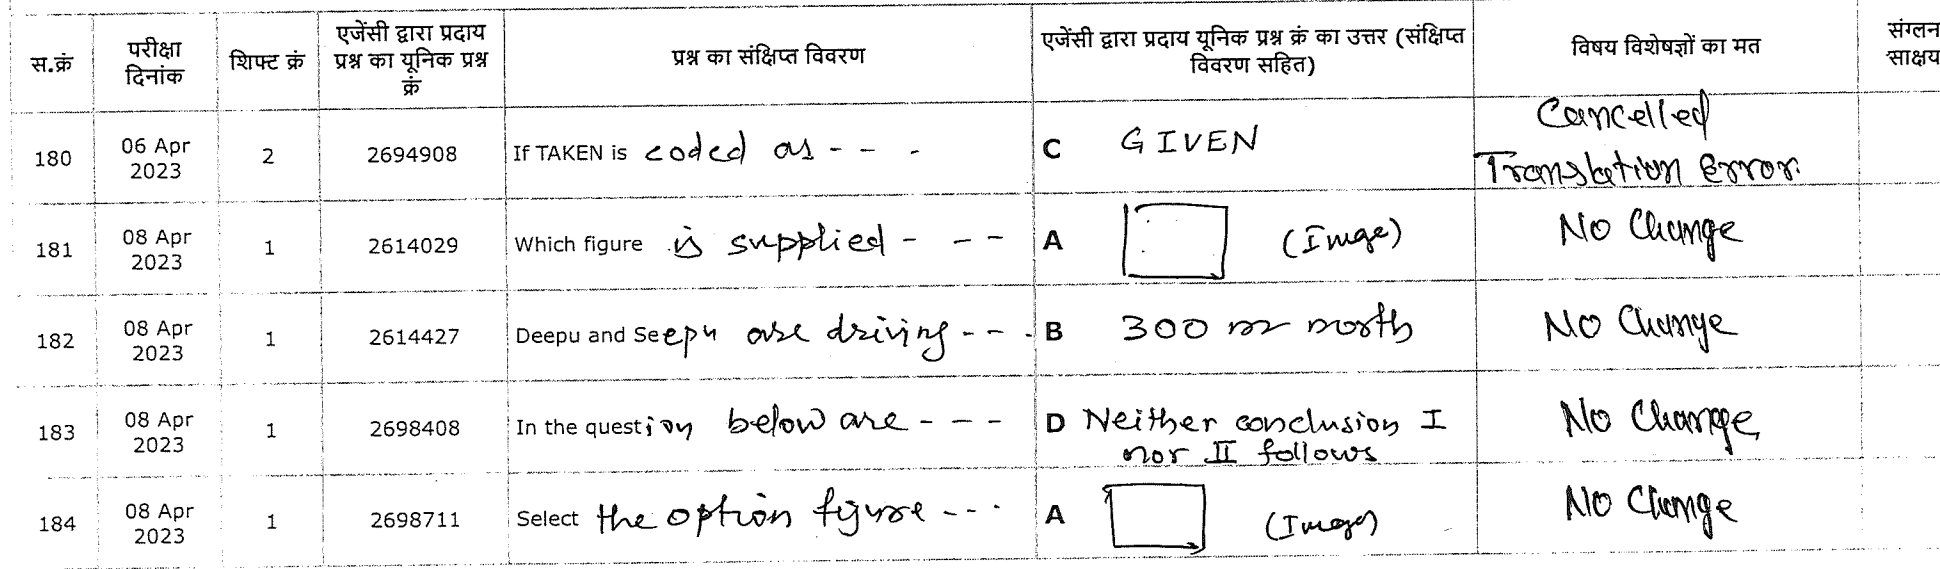 स.क्रं परीक्षा दिनांक शिफ्ट क्रं एजेंसी द्वारा प्रदाय प्रश्न का यूनिक प्रश्न क्रं प्रश्न का संक्षिप्त विवरण एजेंसी द्वारा प्रदाय यूनिक प्रश्न क्रं का उत्तर (संक्षिप्त विवरण सहित) विषय विशेषज्ञों का मत संग्लन साक्षय
180 06 Apr 2023 2 2694908 If TAKEN is coded as - - - C GIVEN Cancelled Translation Error.
181 08 Apr 2023 1 2614029 Which figure is supplied - - - A (Image) No Change
182 08 Apr 2023 1 2614427 Deepu and Seepu are driving - - - B 300 m north No Change
183 08 Apr 2023 1 2698408 In the question below are - - - D Neither conclusion I nor II follows No Change
184 08 Apr 2023 1 2698711 Select the option figure - - - A (Image) No Change